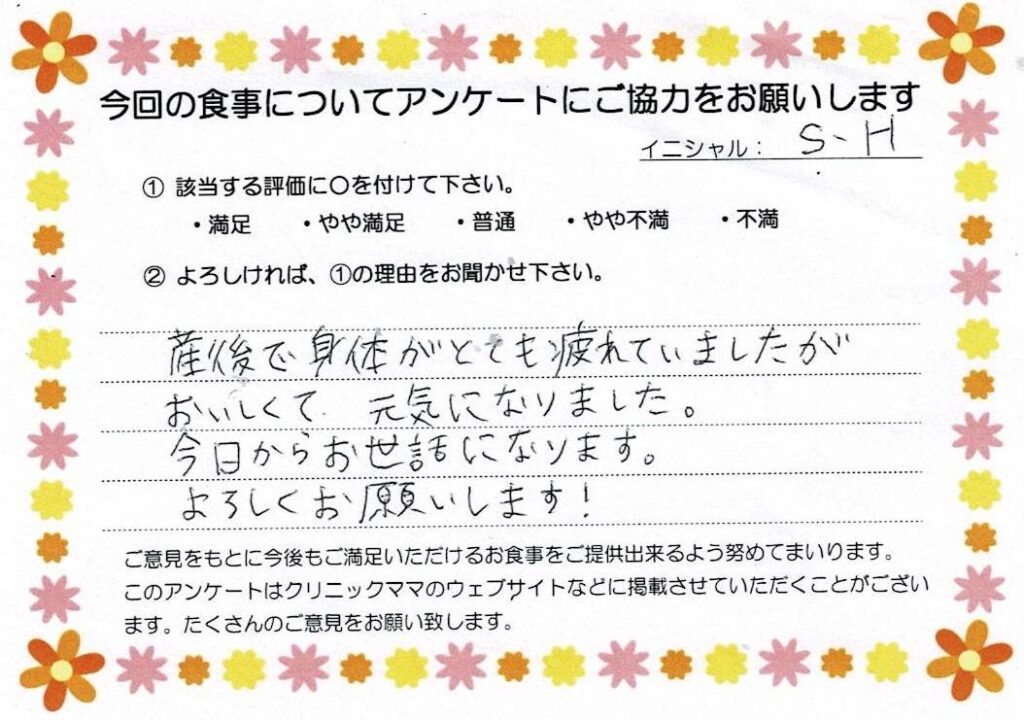 今回の食事についてアンケートにご協力をお願いします
イニシャル： S-H
① 該当する評価に〇を付けて下さい。
・満足 ・やや満足 ・普通 ・やや不満 ・不満
② よろしければ、①の理由をお聞かせ下さい。
産後で身体がとても疲れていましたが
おいしくて 元気になりました。
今日からお世話になります。
よろしくお願いします！
ご意見をもとに今後もご満足いただけるお食事をご提供出来るよう努めてまいります。
このアンケートはクリニックママのウェブサイトなどに掲載させていただくことがござい
ます。たくさんのご意見をお願い致します。